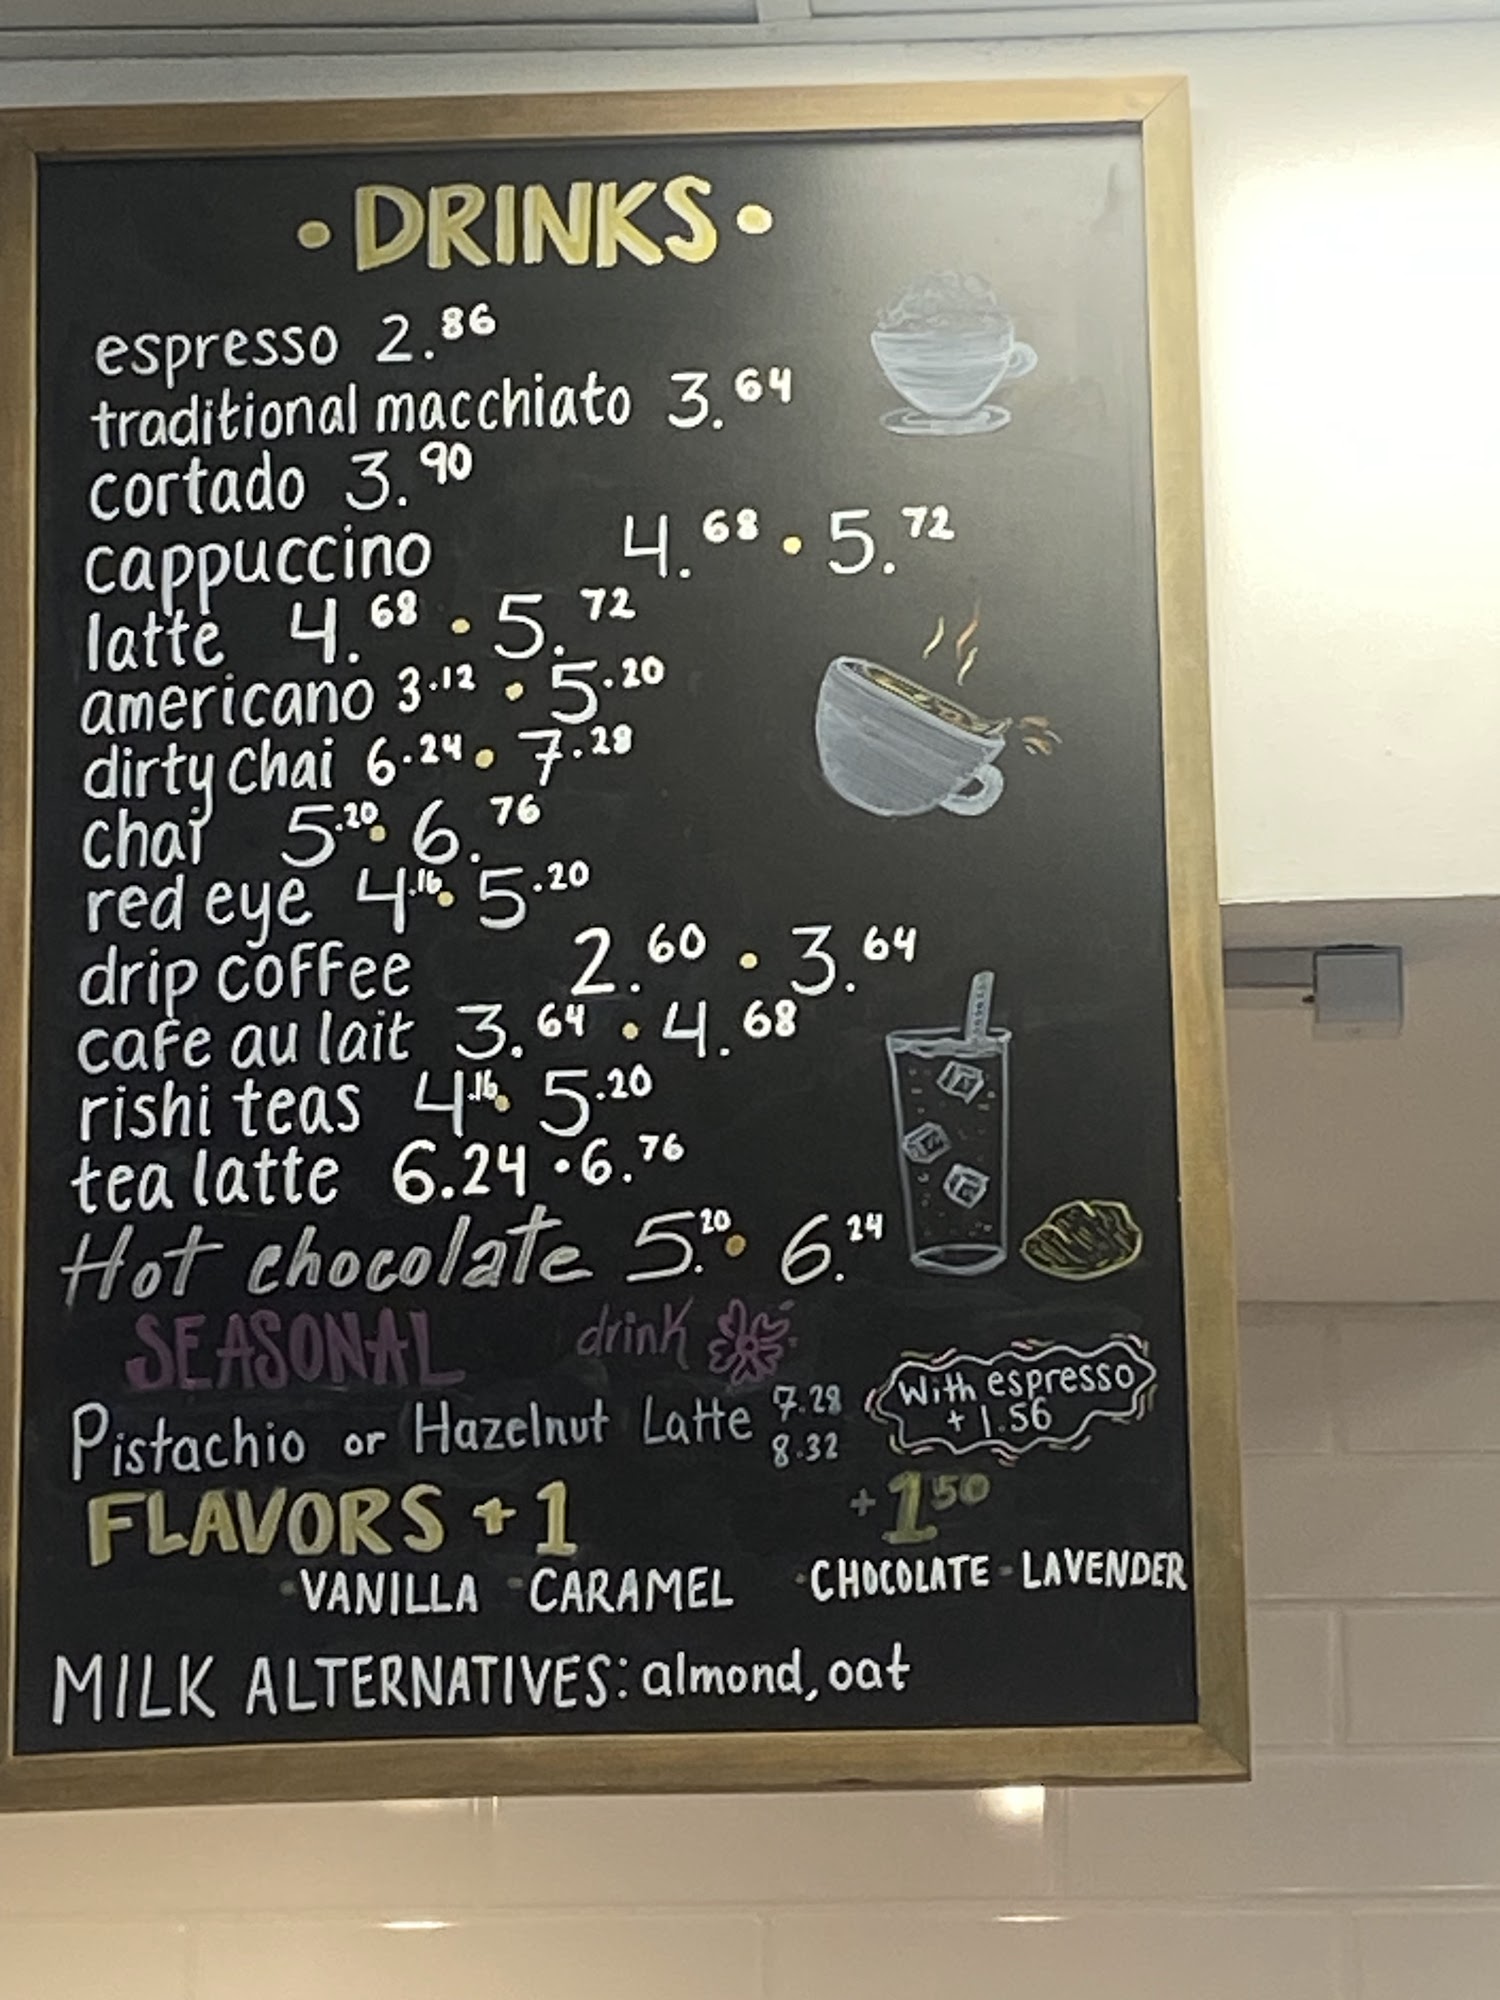 • DRINKS •
espresso 2.86
traditional macchiato 3.64
cortado 3.90
cappuccino 4.68 • 5.72
latte 4.68 • 5.72
americano 3.12 • 5.20
dirty chai 6.24 • 7.28
chai 5.20 • 6.76
red eye 4.16 • 5.20
drip coffee 2.60 • 3.64
cafe au lait 3.64 • 4.68
rishi teas 4.16 • 5.20
tea latte 6.24 • 6.76
Hot chocolate 5.20 • 6.24
SEASONAL drink
Pistachio or Hazelnut Latte 7.28
8.32
With espresso
+ 1.56
FLAVORS + 1
• VANILLA - CARAMEL
+ 1 50
• CHOCOLATE - LAVENDER
MILK ALTERNATIVES: almond, oat